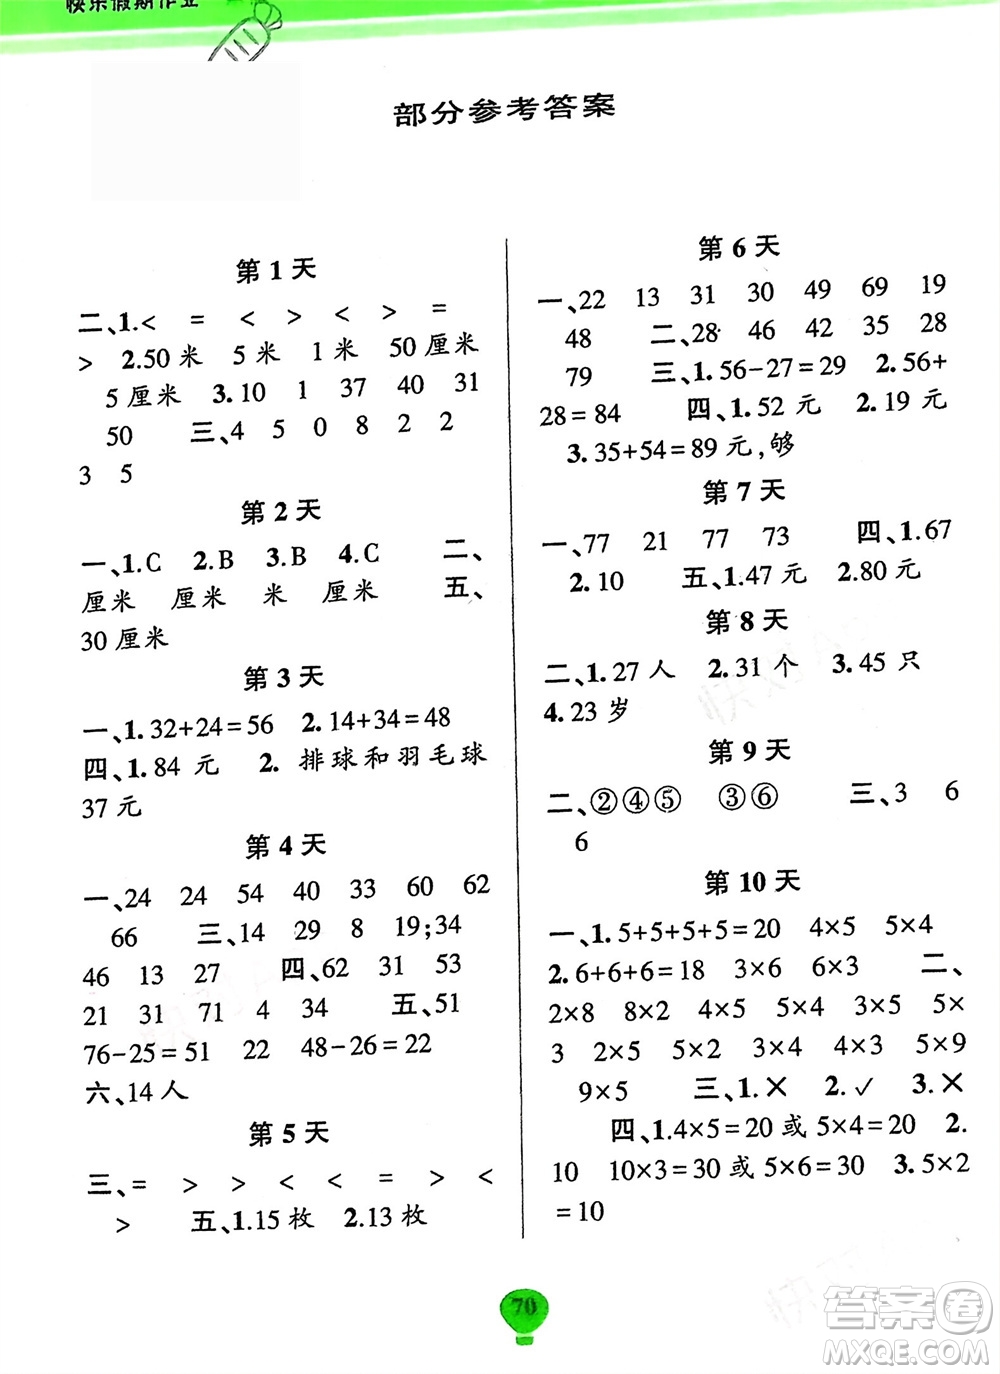 快乐假期作业
部分参考答案
第 1 天
二、1.< = < > < > =
> 2.50 米 5 米 1 米 50 厘米
5 厘米 3. 10 1 37 40 31
50 三、4 5 0 8 2 2
3 5
第 2 天
一、1.C 2.B 3.B 4.C 二、
厘米 厘米 米 厘米 五、
30 厘米
第 3 天
一、1. 32+24=56 2. 14+34=48
四、1. 84 元 2. 排球和羽毛球
37 元
第 4 天
一、24 24 54 40 33 60 62
66 三、14 29 8 19;34
46 13 27 四、62 31 53
21 31 71 4 34 五、51
76-25=51 22 48-26=22
六、14 人
第 5 天
三、= > > < < = > <
> 五、1.15 枚 2.13 枚
第 6 天
一、22 13 31 30 49 69 19
48 二、28 46 42 35 28
79 三、1. 56-27=29 2. 56+
28=84 四、1. 52 元 2. 19 元
3. 35+54=89 元,够
第 7 天
一、77 21 77 73 四、1. 67
2. 10 五、1.47 元 2.80 元
第 8 天
二、1. 27 人 2. 31 个 3. 45 只
4. 23 岁
第 9 天
二、②④⑤ ③⑥ 三、3 6
6
第 10 天
一、1. 5+5+5+5=20 4×5 5×4
2. 6+6+6=18 3×6 6×3 二、
2×8 8×2 4×5 5×4 5×
3 2×5 5×2 4×5 5×9
9×5 三、1.✕ 2.✓ 3.✕
四、1.4×5=20 或 5×4=20 2.
10 10×3=30 或 5×6=30 3. 5×2
=10
70
答案卷
MXQE.COM